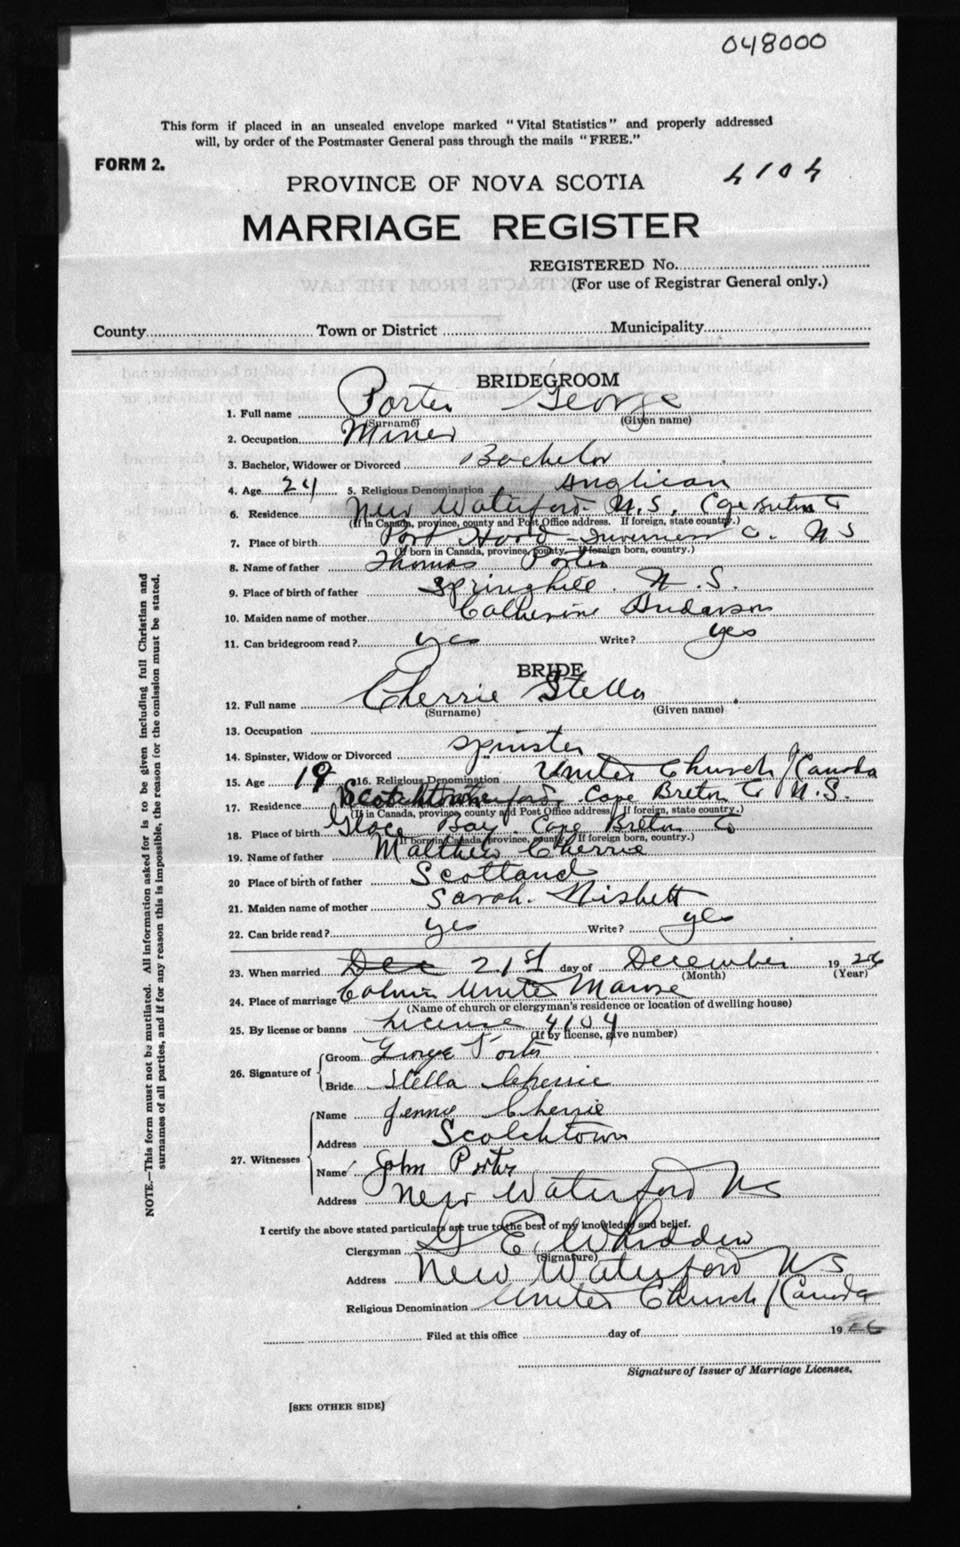 048000
This form if placed in an unsealed envelope marked "Vital Statistics" and properly addressed
will, by order of the Postmaster General pass through the mails "FREE."
FORM 2.
4104
PROVINCE OF NOVA SCOTIA
MARRIAGE REGISTER
REGISTERED No.
(For use of Registrar General only.)
County Town or District Municipality
BRIDEGROOM
1. Full name Porter George
(Surname) (Given name)
2. Occupation Miner
3. Bachelor, Widower or Divorced Bachelor
4. Age 24 5. Religious Denomination Anglican
6. Residence New Waterford N.S. Cape Breton Co
(If in Canada, province, county and Post Office address. If foreign, state country.)
7. Place of birth Port Hood Inverness Co. N S
(If born in Canada, province, county. If foreign born, country.)
8. Name of father Thomas Porter
9. Place of birth of father Springhill N.S.
10. Maiden name of mother Catherine Anderson
11. Can bridegroom read? yes Write? yes
BRIDE
12. Full name Cherrie Stella
(Surname) (Given name)
13. Occupation
14. Spinster, Widow or Divorced spinster
15. Age 19 16. Religious Denomination United Church / Canada
17. Residence Scotchtown Cape Breton Co N.S.
(If in Canada, province, county and Post Office address. If foreign, state country.)
18. Place of birth Glace Bay. Cape Breton Co
(If born in Canada, province, country. If foreign born, country.)
19. Name of father Matthew Cherrie
20 Place of birth of father Scotland
21. Maiden name of mother Sarah. Nisbett
22. Can bride read? yes Write? yes
23. When married Dec 21st day of December 1926
(Month) (Year)
24. Place of marriage Calvin United Manse
(Name of church or clergyman's residence or location of dwelling house)
25. By license or banns License 4104
(If by license, give number)
26. Signature of Groom George Porter
Bride Stella Cherrie
27. Witnesses Name Jennie Cherrie
Address Scotchtown
Name John Porter
Address New Waterford NS
I certify the above stated particulars are true to the best of my knowledge and belief.
Clergyman G E Whidden
(Signature)
Address New Waterford N S
Religious Denomination United Church / Canada
Filed at this office day of 1926
Signature of Issuer of Marriage Licenses.
[SEE OTHER SIDE]
NOTE.—This form must not be mutilated. All information asked for is to be given including full Christian and
surnames of all parties, and if for any reason this is impossible, the reason for the omission must be stated.